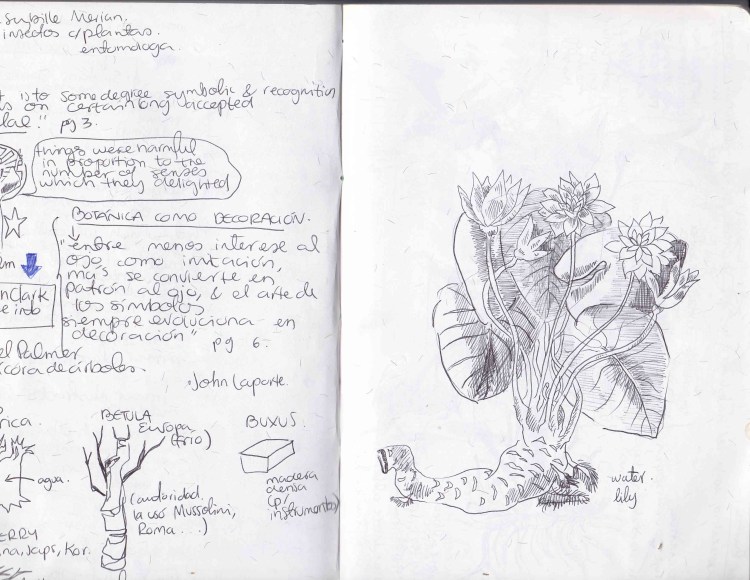 Sybille Merian.
insectos c/plantas.
entomóloga
is to some degree symbolic & recognition
on certain long accepted
pg 3.
things were harmful
in proportion to the
number of senses
which they delighted
BOTÁNICA COMO DECORACIÓN.
"entre menos interese al
ojo como imitación,
más se convierte en
patrón al ojo, & el arte de
los símbolos
siempre evoluciona en
decoración"
pg 6.
Clark
Palmer
John Laporte.
BETULA
Europa
(frío)
BUXUS
agua.
madera
densa
(p/
instrumentos)
(autoridad.
la usó Mussolini,
Roma....)
Japs, Kor.
water
lily